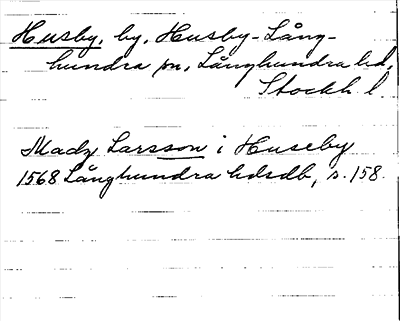 Husby, by, Husby-Lång-
hundra sn, Långhundra hd,
Stockh. l.
Madz Larsson i Huseby
1568 Långhundra hdsdb, s. 158.